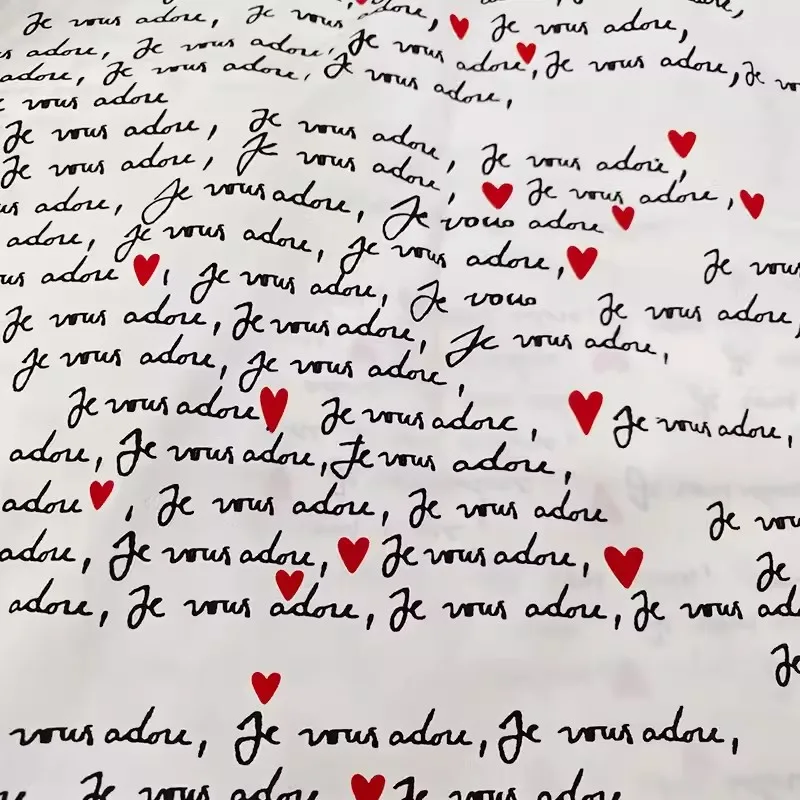 Je vous adore, Je vous adore, Je vous adore,
adore, Je vous adore, Je vous adore, Je vous adore,
adore, Je vous adore, Je vous adore,
vous adore
Je vous adore, Je vous adore, Je vous adore,
Je vous adore, Je vous adore, Je vous adore,
adore, Je vous adore, Je vous adore
adore, Je vous adore, Je vous adore, Je vous
adore, Je vous adore, Je vous Je vous adore,
Je vous adore, Je vous adore, Je vous adore,
Je vous adore, Je vous adore,
Je vous adore Je vous adore, Je vous adore,
adore, Je vous adore, Je vous adore,
adore, Je vous adore, Je vous adore Je
adore, Je vous adore, Je vous adore, Je
adore, Je vous adore, Je vous adore, Je vous
Je
vous adore, Je vous adore, Je vous adore,
Je vous adore Je vous adore